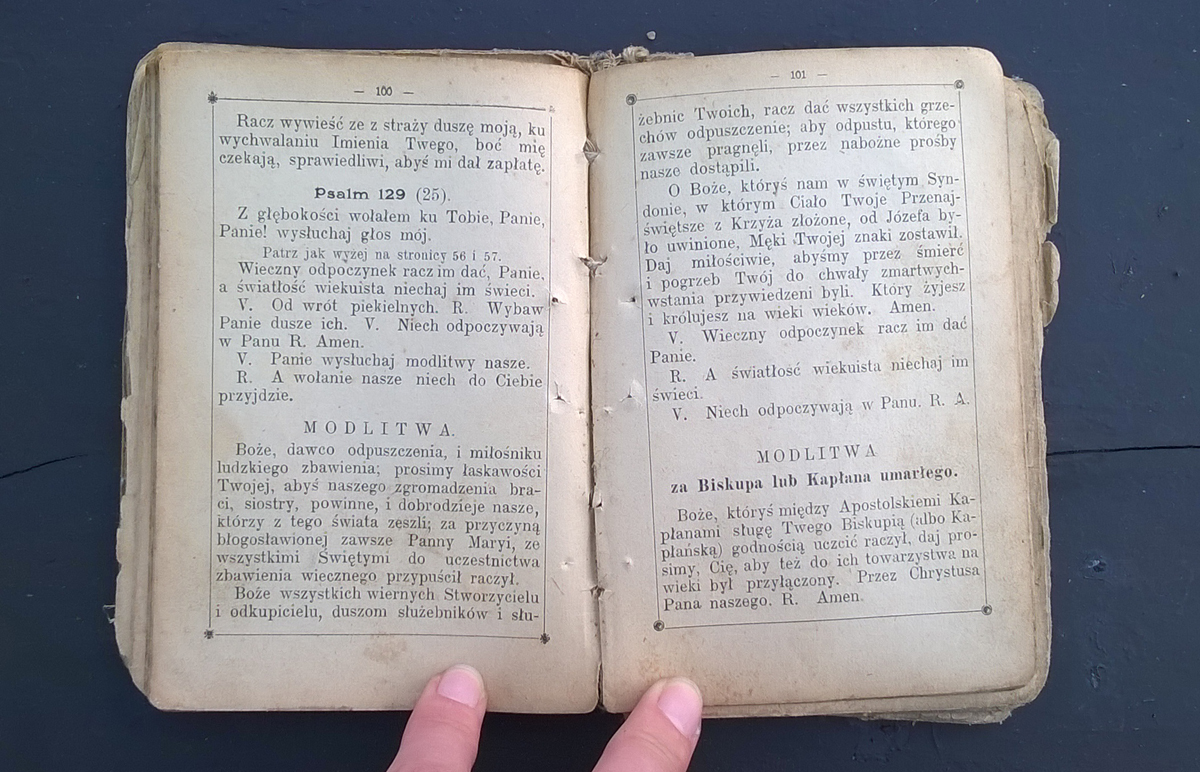 — 100 —
Racz wywieść ze z straży duszę moją, ku
wychwalaniu Imienia Twego, boć mię
czekają, sprawiedliwi, abyś mi dał zapłatę.
Psalm 129 (25).
Z głębokości wołałem ku Tobie, Panie,
Panie! wysłuchaj głos mój.
Patrz jak wyzej na stronicy 56 i 57.
Wieczny odpoczynek racz im dać, Panie,
a światłość wiekuista niechaj im świeci.
V. Od wrót piekielnych. R. Wybaw
Panie dusze ich. V. Niech odpoczywają
w Panu R. Amen.
V. Panie wysłuchaj modlitwy nasze.
R. A wołanie nasze niech do Ciebie
przyjdzie.
MODLITWA.
Boże, dawco odpuszczenia, i miłośniku
ludzkiego zbawienia; prosimy łaskawości
Twojej, abyś naszego zgromadzenia bra-
ci, siostry, powinne, i dobrodzieje nasze,
którzy z tego świata zeszli; za przyczyną
błogosławionej zawsze Panny Maryi, ze
wszystkimi Świętymi do uczestnictwa
zbawienia wiecznego przypuścił raczył.
Boże wszystkich wiernych Stworzycielu
i odkupicielu, duszom służebników i słu-
— 101 —
żebnic Twoich, racz dać wszystkich grze-
chów odpuszczenie; aby odpustu, którego
zawsze pragnęli, przez nabożne prośby
nasze dostąpili.
O Boże, któryś nam w świętym Syn-
donie, w którym Ciało Twoje Przenaj-
świętsze z Krzyża złożone, od Józefa by-
ło uwinione, Męki Twojej znaki zostawił.
Daj miłościwie, abyśmy przez śmierć
i pogrzeb Twój do chwały zmartwych-
wstania przywiedzeni byli. Który żyjesz
i królujesz na wieki wieków. Amen.
V. Wieczny odpoczynek racz im dać
Panie.
R. A światłość wiekuista niechaj im
świeci.
V. Niech odpoczywają w Panu. R. A.
MODLITWA
za Biskupa lub Kapłana umarłego.
Boże, któryś między Apostolskiemi Ka-
płanami sługę Twego Biskupią (albo Ka-
płańską) godnością uczcić raczył, daj pro-
simy, Cię, aby też do ich towarzystwa na
wieki był przyłączony. Przez Chrystusa
Pana naszego. R. Amen.